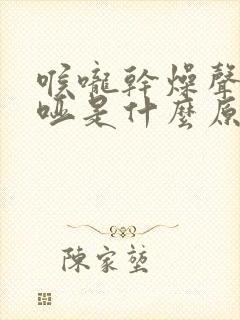 喉嚨幹燥聲
啞是什麼原
陳家塋